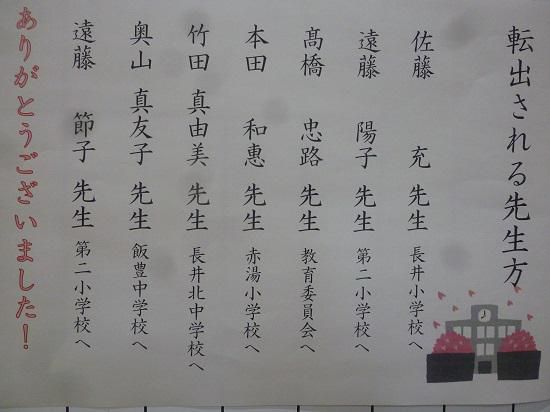 転出される先生方
佐藤 充 先生 長井小学校へ
遠藤 陽子 先生 第二小学校へ
髙橋 忠路 先生 教育委員会へ
本田 和惠 先生 赤湯小学校へ
竹田 真由美 先生 長井北中学校へ
奥山 真友子 先生 飯豊中学校へ
遠藤 節子 先生 第二小学校へ
ありがとうございました！